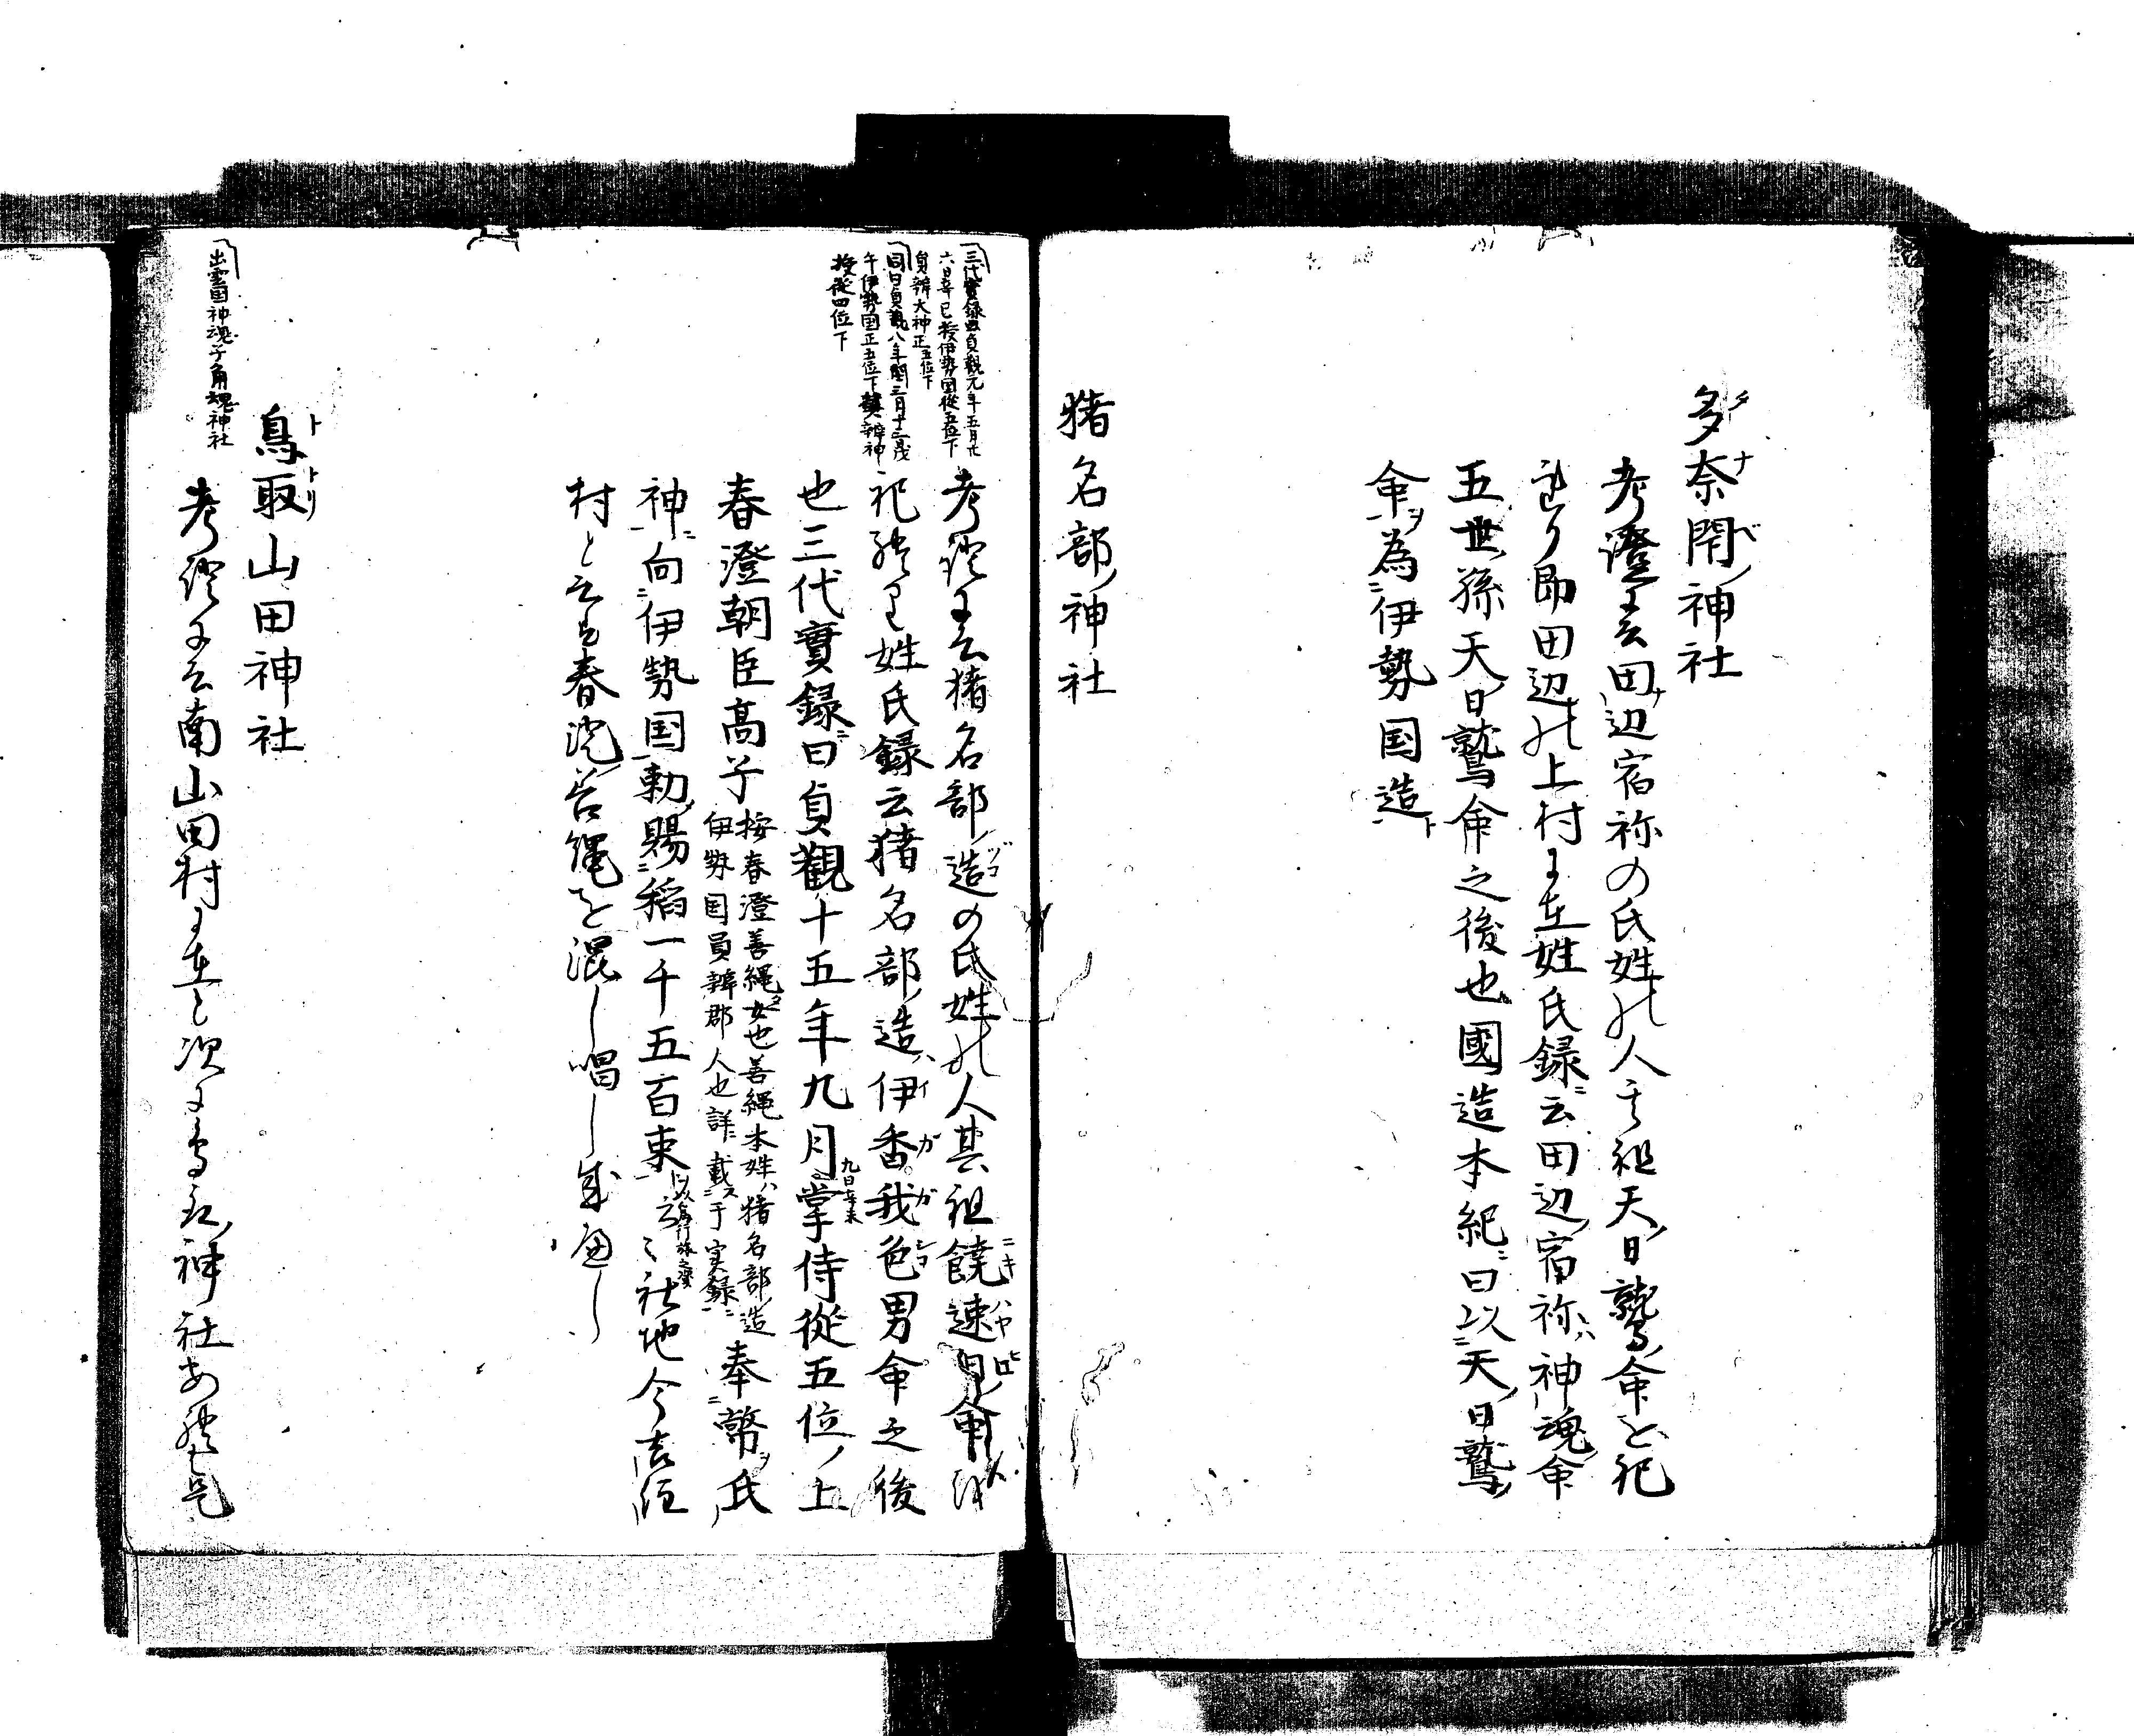 多奈閇神社
考證に云田辺宿祢の氏姓の人其祖天日鷲命を祀
れり即田辺の上村に在姓氏録云田辺宿祢神魂命
五世孫天日鷲命之後也國造本紀曰以天日鷲
命為伊勢国造
猪名部神社
三代實録曰貞觀元年五月廿
六日辛巳授伊勢国從五位下
員辨大神正五位下
同曰貞觀八年閏三月十三日戊
午伊勢国正五位下員辨神
授從四位下
考證に云猪名部造の氏姓の人其祖饒速日命を
祀れり姓氏録云猪名部造伊香我色男命之後
也三代實録曰貞觀十五年九月九日辛未掌侍從五位上
春澄朝臣高子
按春澄善縄女也善縄本姓ハ猪名部造
伊勢国員辨郡人也詳載于実録
奉幣氏
神向伊勢国勅賜稲一千五百束以為行旅之資云々社地今
村と云も春澄善縄を混し唱し成へし
鳥取山田神社
出雲国神魂子角魂神社
考證に云南山田村に在し次に鳥取神社あれは是